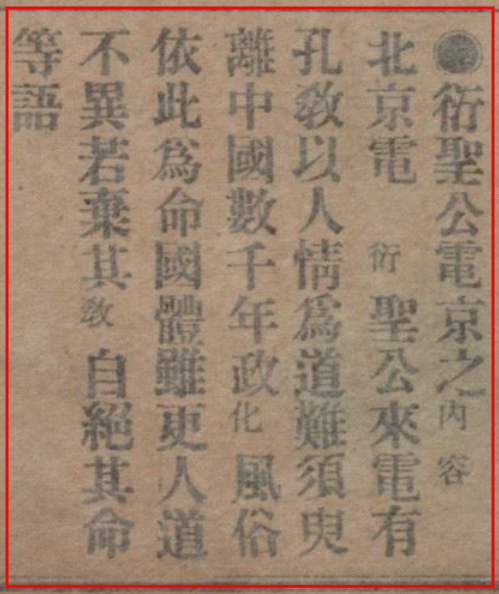 ●衍聖公電京之內容
北京電衍聖公來電有
孔敎以人情爲道難須臾
離中國數千年政化風俗
依此爲命國體雖更人道
不異若棄其敎自絕其命
等語